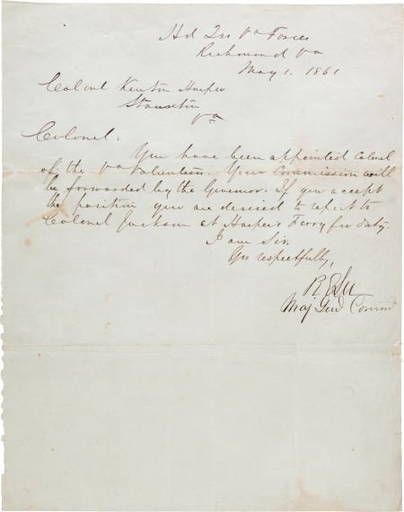 Hd Qrs Va Forces
Richmond Va
May 1. 1861
Colonel Kenton Harper
Staunton
Va
Colonel.
You have been appointed Colonel
of the Va Volunteers. Your Commission will
be forwarded by the Governor. If you accept
the position you are desired to report to
Colonel Jackson at Harpers Ferry for duty.
I am Sir.
Yrs respectfully,
R E Lee
Maj Genl Commd